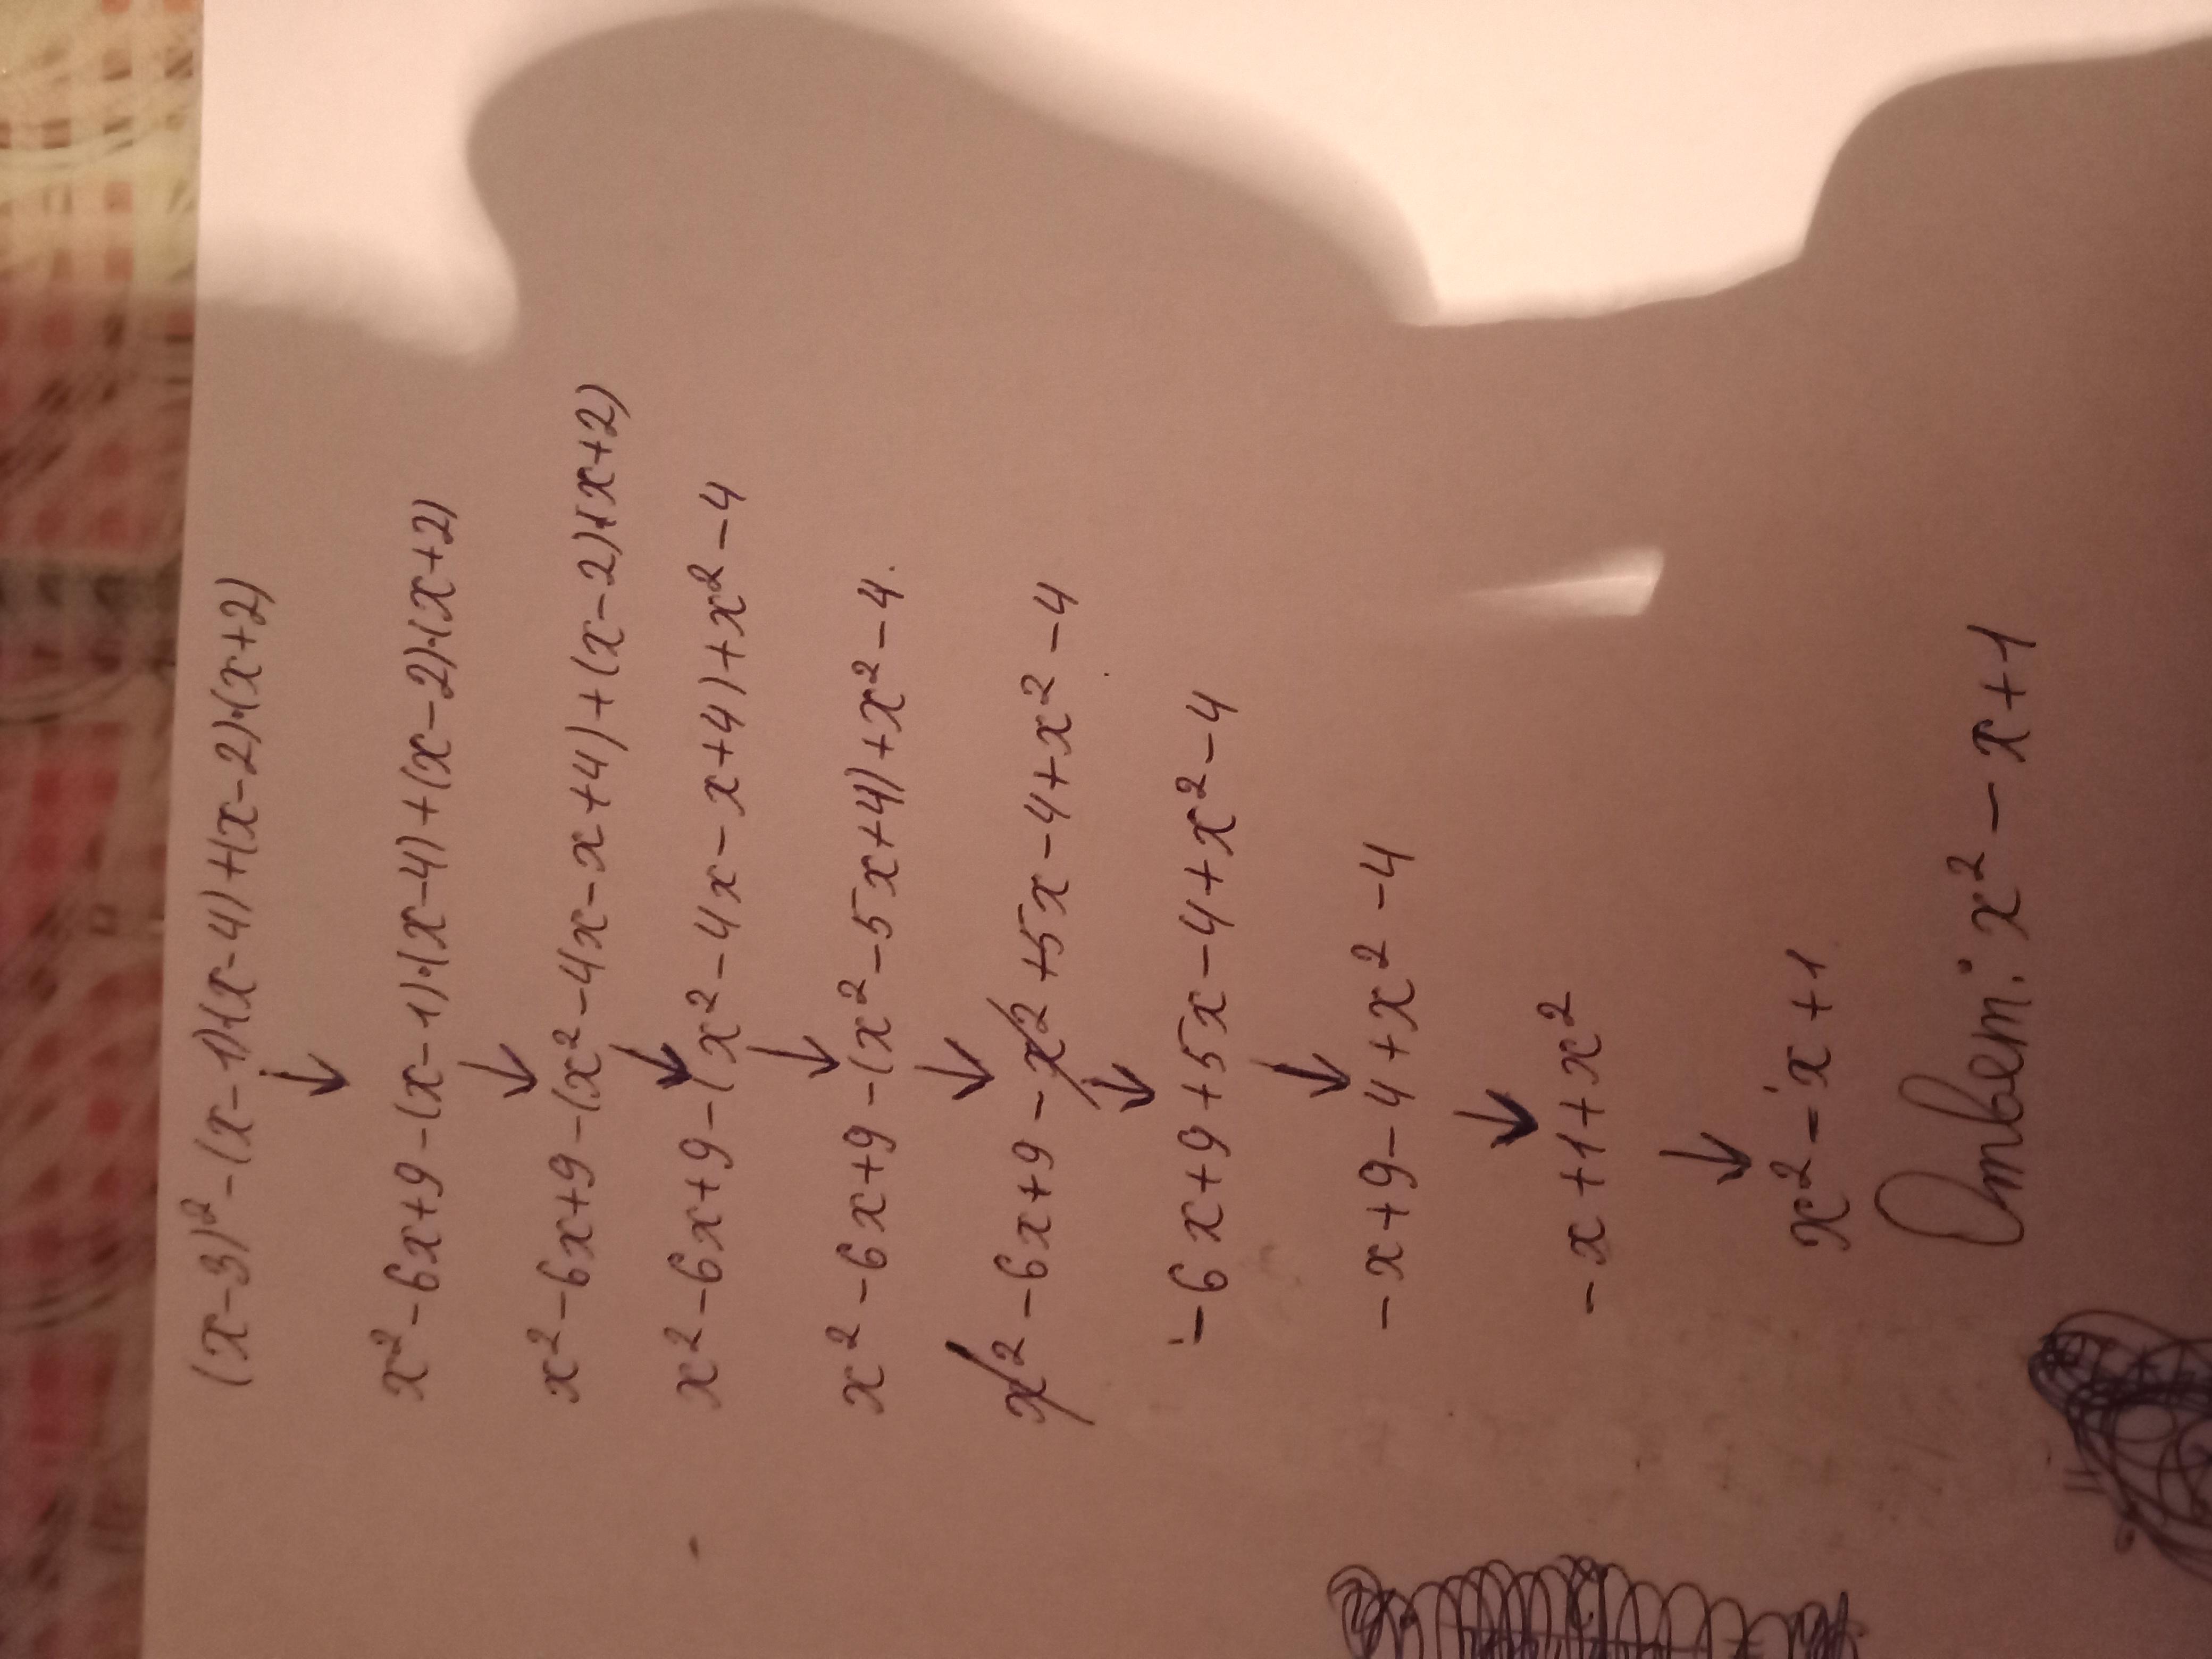 (x-3)² - (x-1)·(x-4)+(x-2)·(x+2)
↓
x² - 6x+9 - (x-1)·(x-4)+(x-2)·(x+2)
↓
x² - 6x+9 - (x² - 4x - x + 4) + (x-2)·(x+2)
↓
x² - 6x+9 - (x² - 4x - x + 4) + x² - 4
↓
x² - 6x+9 - (x² - 5x+4) + x² - 4.
↓
x² - 6x+9 - x² + 5x - 4 + x² - 4
↓
-6x+9+5x-4+x²-4
↓
-x+9-4+x²-4
↓
-x+1+x²
↓
x² - x + 1
Ответ: x² - x + 1